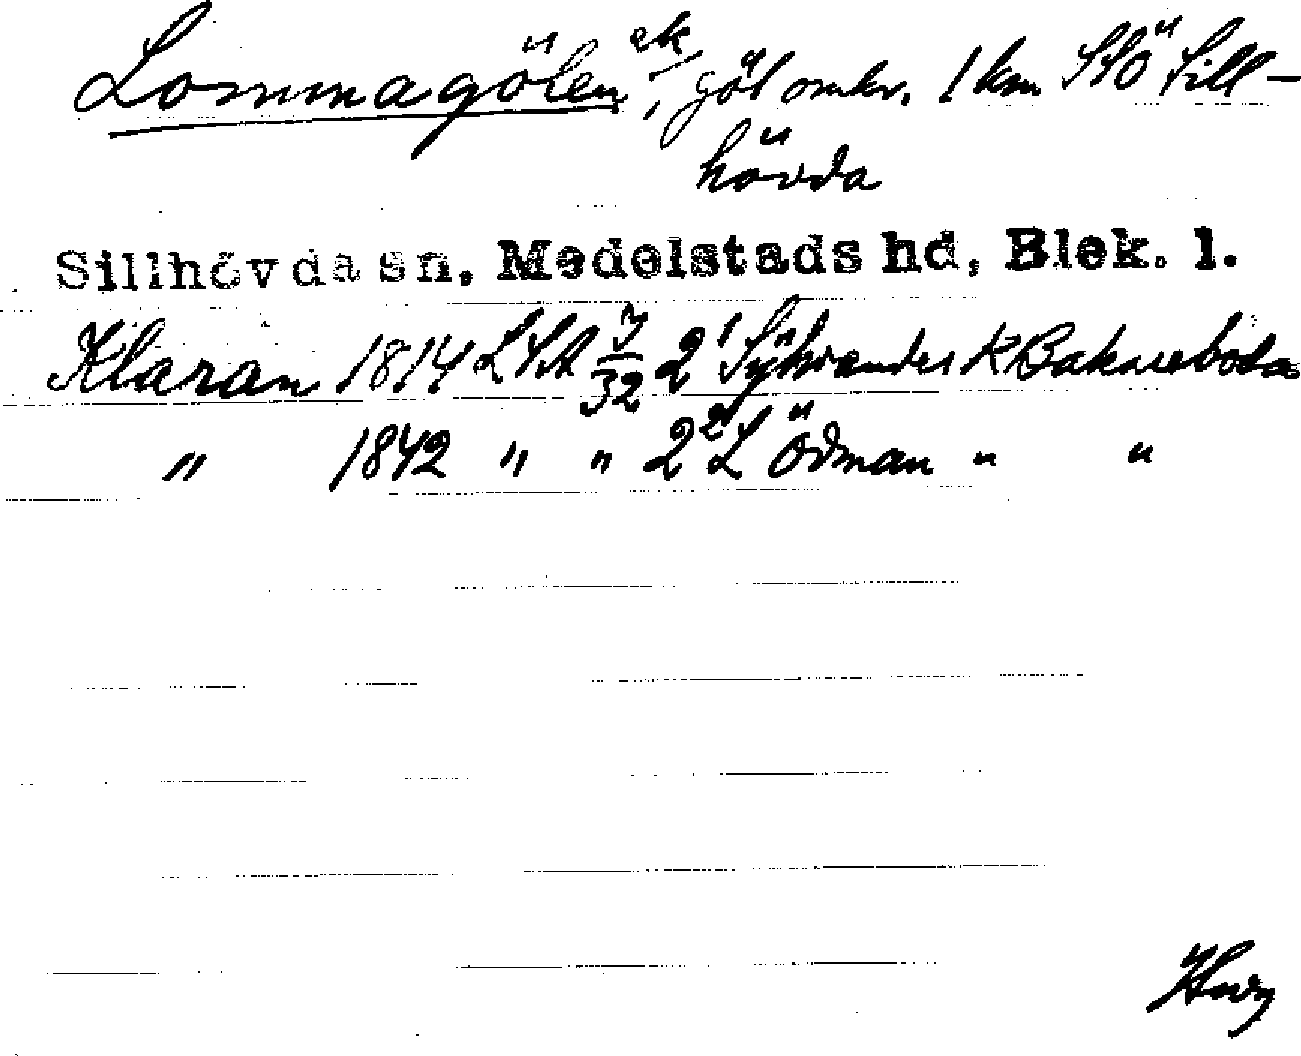 Lommagölen ek, göl omkr. 1 km SSÖ Sill-
hövda
Sillhövda sn, Medelstads hd, Blek. l.
Klaran 1814 LSA 7/32 2¹ k Bakareboda
" 1842 " " 2² L Ödman " "